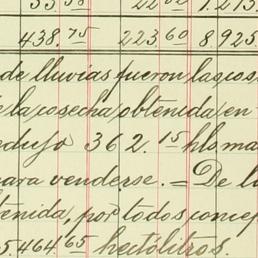 438.75 223.60 8.925.
de lluvias fueron las cos
la cosecha obtenida en
dujo 362.15 hlo ma
para venderse. = De la
tenida, por todos concep
5.464.65 hectólitros.